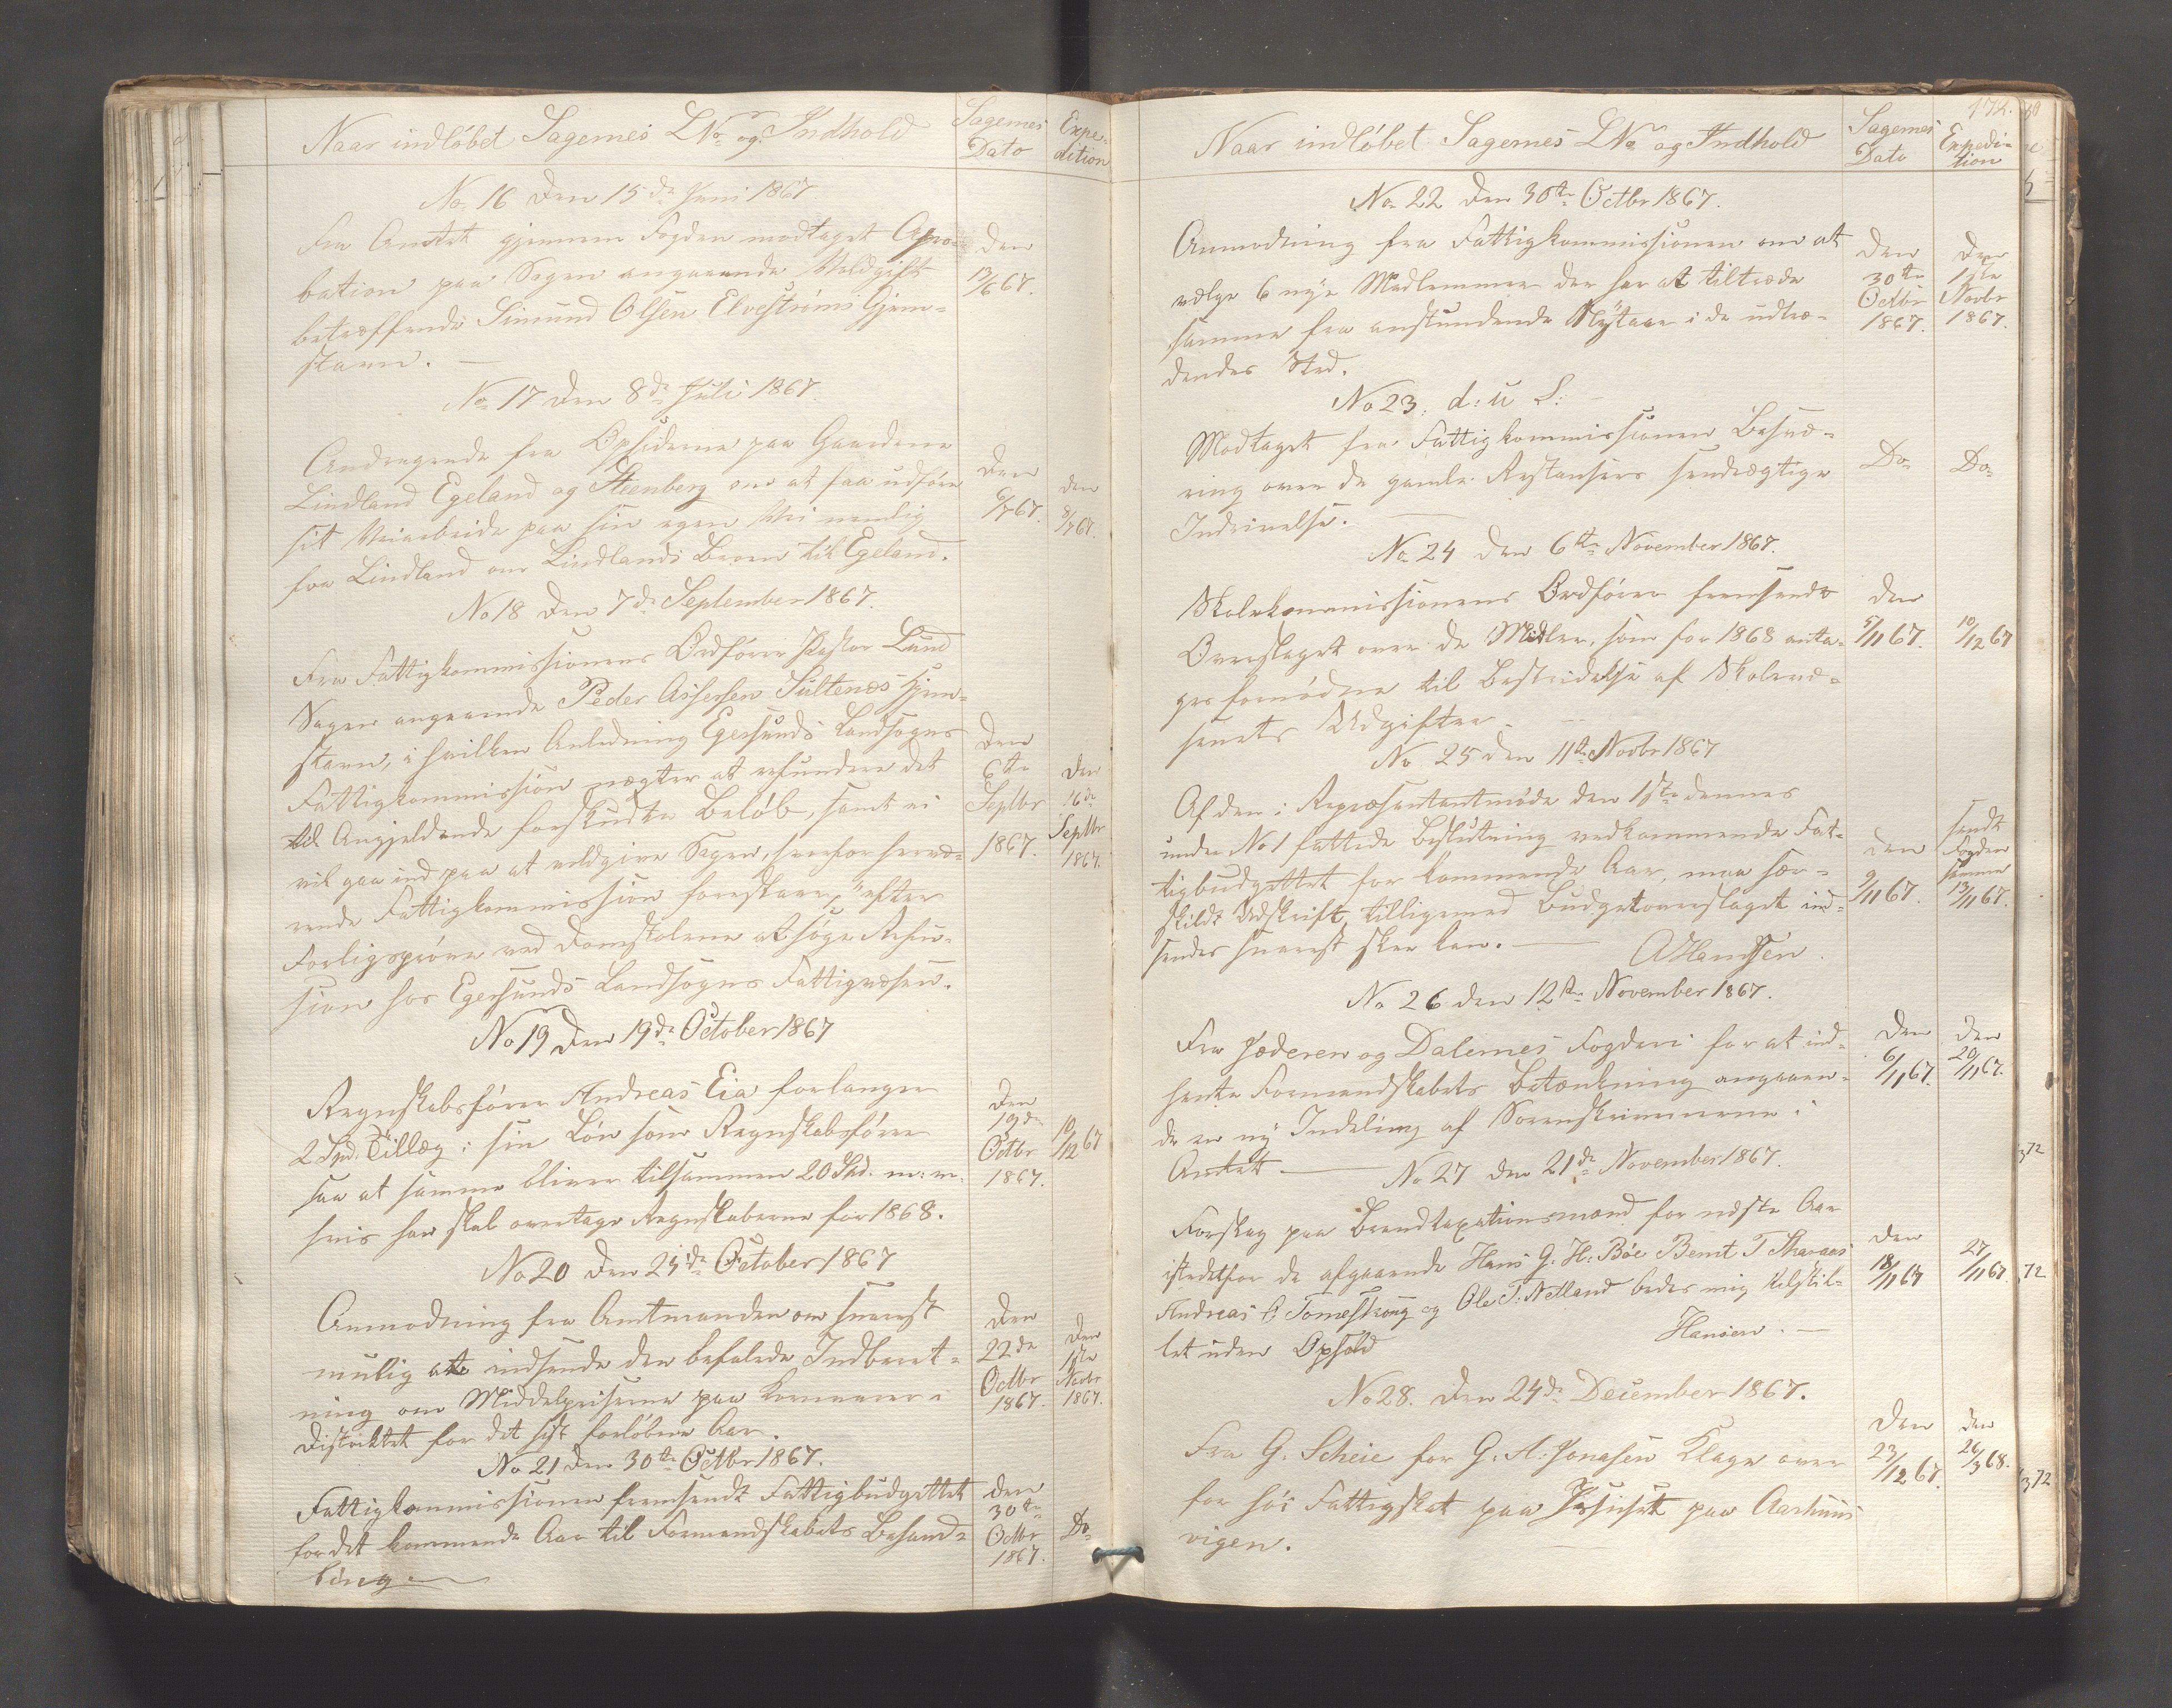 Naar indløbet Sagernes LNo og Indhold
Sagernes Dato
Expedition
No. 16 den 15de Juni 1867.
Fra Amtet gjennem Fogden modtaget Apro-
bation paa Sagen angaaende Voldgift
betræffende Simund Olsen Elvestrøms Hjem-
stavn. —
den 13/6 67.
No 17 den 8de Juli 1867.
Andragende fra Opsidderne paa Gaardene
Lindland Egeland og Steenberg om at faa udføre
sit Veiarbeide paa sin egen Vei nemlig
fra Lindland over Lindlands Broen til Egeland.
den 6/7 67.
den 8/7 67.
No 18 den 7de September 1867.
Fra Fattigkommissionens Ordfører Pastor Lund
Sagen angaaende Peder Assersen Sultenæs Hjem-
stavn, i hvilken Anledning Egersunds Landsogns
Fattigkommission nægter at refundere det
til Angjeldende forskudte Beløb, samt ei
vil gaa ind paa at voldgive Sagen, hvorfor hervæ-
rende Fattigkommission foreslaaer, "efter
Forligsprøve ved Domstolene at søge Refu-
sion hos Egersunds Landsogns Fattigvæsen.
den 6te Septbr 1867.
den 16de Septbr 1867.
No 19 den 19de October 1867
Regnskabsfører Andreas Eia forlanger
2 Spd. Tillæg i sin Løn som Regnskabsfører
saa at samme bliver tilsammen 20 Spd. m: m.
hvis han skal overtage Regnskaberne for 1868.
den 19de Octbr 1867.
10/12 67
No 20 den 25de October 1867
Anmodning fra Amtmanden om snarest
mulig at indsende den befalede Indberet-
ning om Middelpriserne paa Kornvarer i
Distriktet for det sidst forløbne Aar.
den 22de Octbr 1867.
den 1ste Novbr 1867.
No 21 den 30te Octbr 1867.
Fattigkommissionen fremsendt Fattigbudgettet
for det kommende Aar til Formandskabets Behand-
ling. —
den 30te Octbr 1867.
Do
172.
Naar indløbet Sagernes LNo og Indhold
Sagernes Dato
Expedition
No 22 den 30te Octbr 1867.
Anmodning fra Fattigkommissionen om at
vælge 6 nye Medlemmer der har at tiltræde
samme fra anstundende Nytaar i de udtræ-
dendes Sted.
den 30te Octbr 1867.
den 1ste Novbr 1867.
No 23. d: u S: —
Modtaget fra Fattigkommissionen Besvæ-
ring over de gamle Restansers sendrægtige
Inddrivelse. —
Do
Do
No 24 den 6te November 1867.
Skolekommissionens Ordfører fremsendt
Overslaget over de Midler, som for 1868 anta-
ges fornødne til Bestridelse af Skolevæ-
senets Udgifter. —
den 5/11 67.
10/12 67
No 25 den 11te Novbr 1867
Af den i Repræsentantmøde den 1ste dennes
under No 1 fattede Beslutning vedkommende Fat-
tigbudgettet for kommende Aar, maa sær-
skildt Udskrift tilligemed Budgetoverslaget ind-
sendes snarest skee kan. —
A Hansen.
den 9/11 67.
sendt Fogden samme 13/11 67.
No 26 den 12te November 1867.
Fra Jæderen og Dalernes Fogderi for at ind-
hente Formandskabets Betænkning angaaen-
de en ny Inddeling af Sorenskriverierne i
Amtet. —
den 6/11 67.
den 20/11 67.
No 27 den 21de November 1867.
Forslag paa Brandtaxationsmænd for næste Aar
istedetfor de afgaaende Hans G. H. Bøe Bernt T Skaraas
Andreas O Tomestrong og Ole T. Netland bedes mig tilstil-
let uden Ophold
Hansen. —
den 18/11 67
27/11 67.
No 28. den 24de December 1867.
Fra G. Scheie for G. A. Jonasen Klage over
for høi Fattigskat paa Huset paa Aarhuus
vigen.
den 23/12 67.
den 26/3 68.